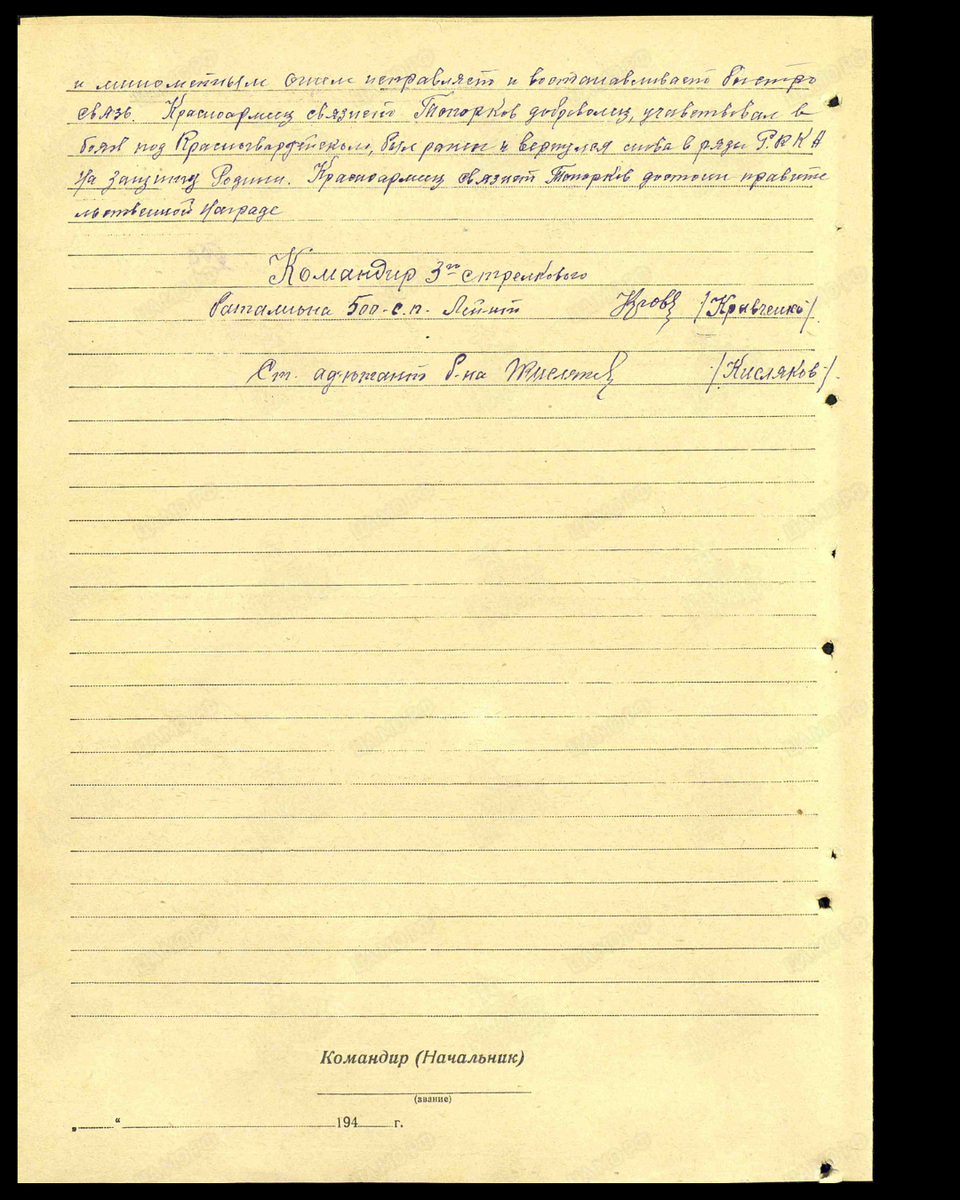 и минометным огнем исправляет и востанавливает быстро
связь. Красноармеец связист Топорков доброволец, учавствовал в
боях под Красногвардейском, был ранен и вернулся снова в ряды Р.К.К.А
на защиту Родины. Красноармеец связист Топорков достоин правите
льственной награде
Командир 3го стрелкового
баталиона 500-с.п. Лей-нт /Кравченко/.
Ст. адъютант б-на /Кисляков/.
Командир (Начальник)
(звание)
„ “ 194 г.